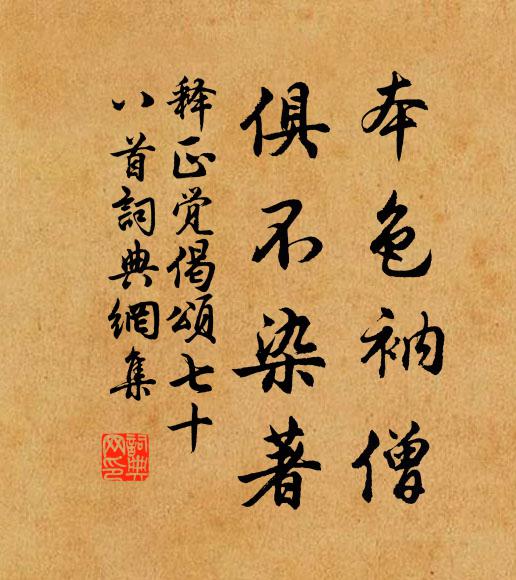 本色衲僧
俱不染著
释正觉偈颂七十
八首詞典網集
詞典网印